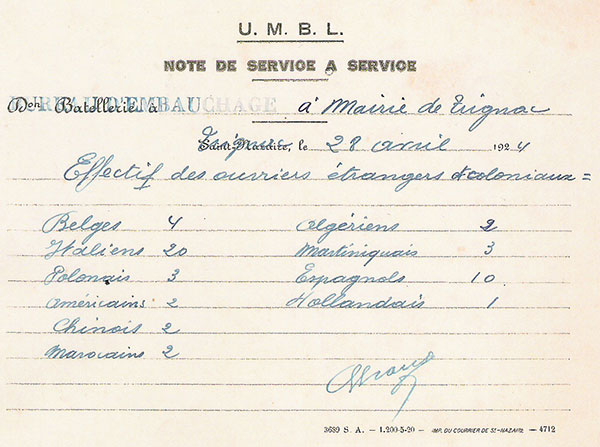 U. M. B. L.
NOTE DE SERVICE A SERVICE
Don Batellerie à BUREAU D'EMBAUCHAGE à Mairie de Trignac
Saint-Nazaire, Trignac le 28 avril 1924
Effectif des ouvriers étrangers & coloniaux =
Belges 4 Algériens 2
Italiens 20 Martiniquais 3
Polonais 3 Espagnols 10
Américains 2 Hollandais 1
Chinois 2
Marocains 2
3639 S. A. — 1.200-5-20 — IMP. DU COURRIER DE ST-NAZAIRE — 4712